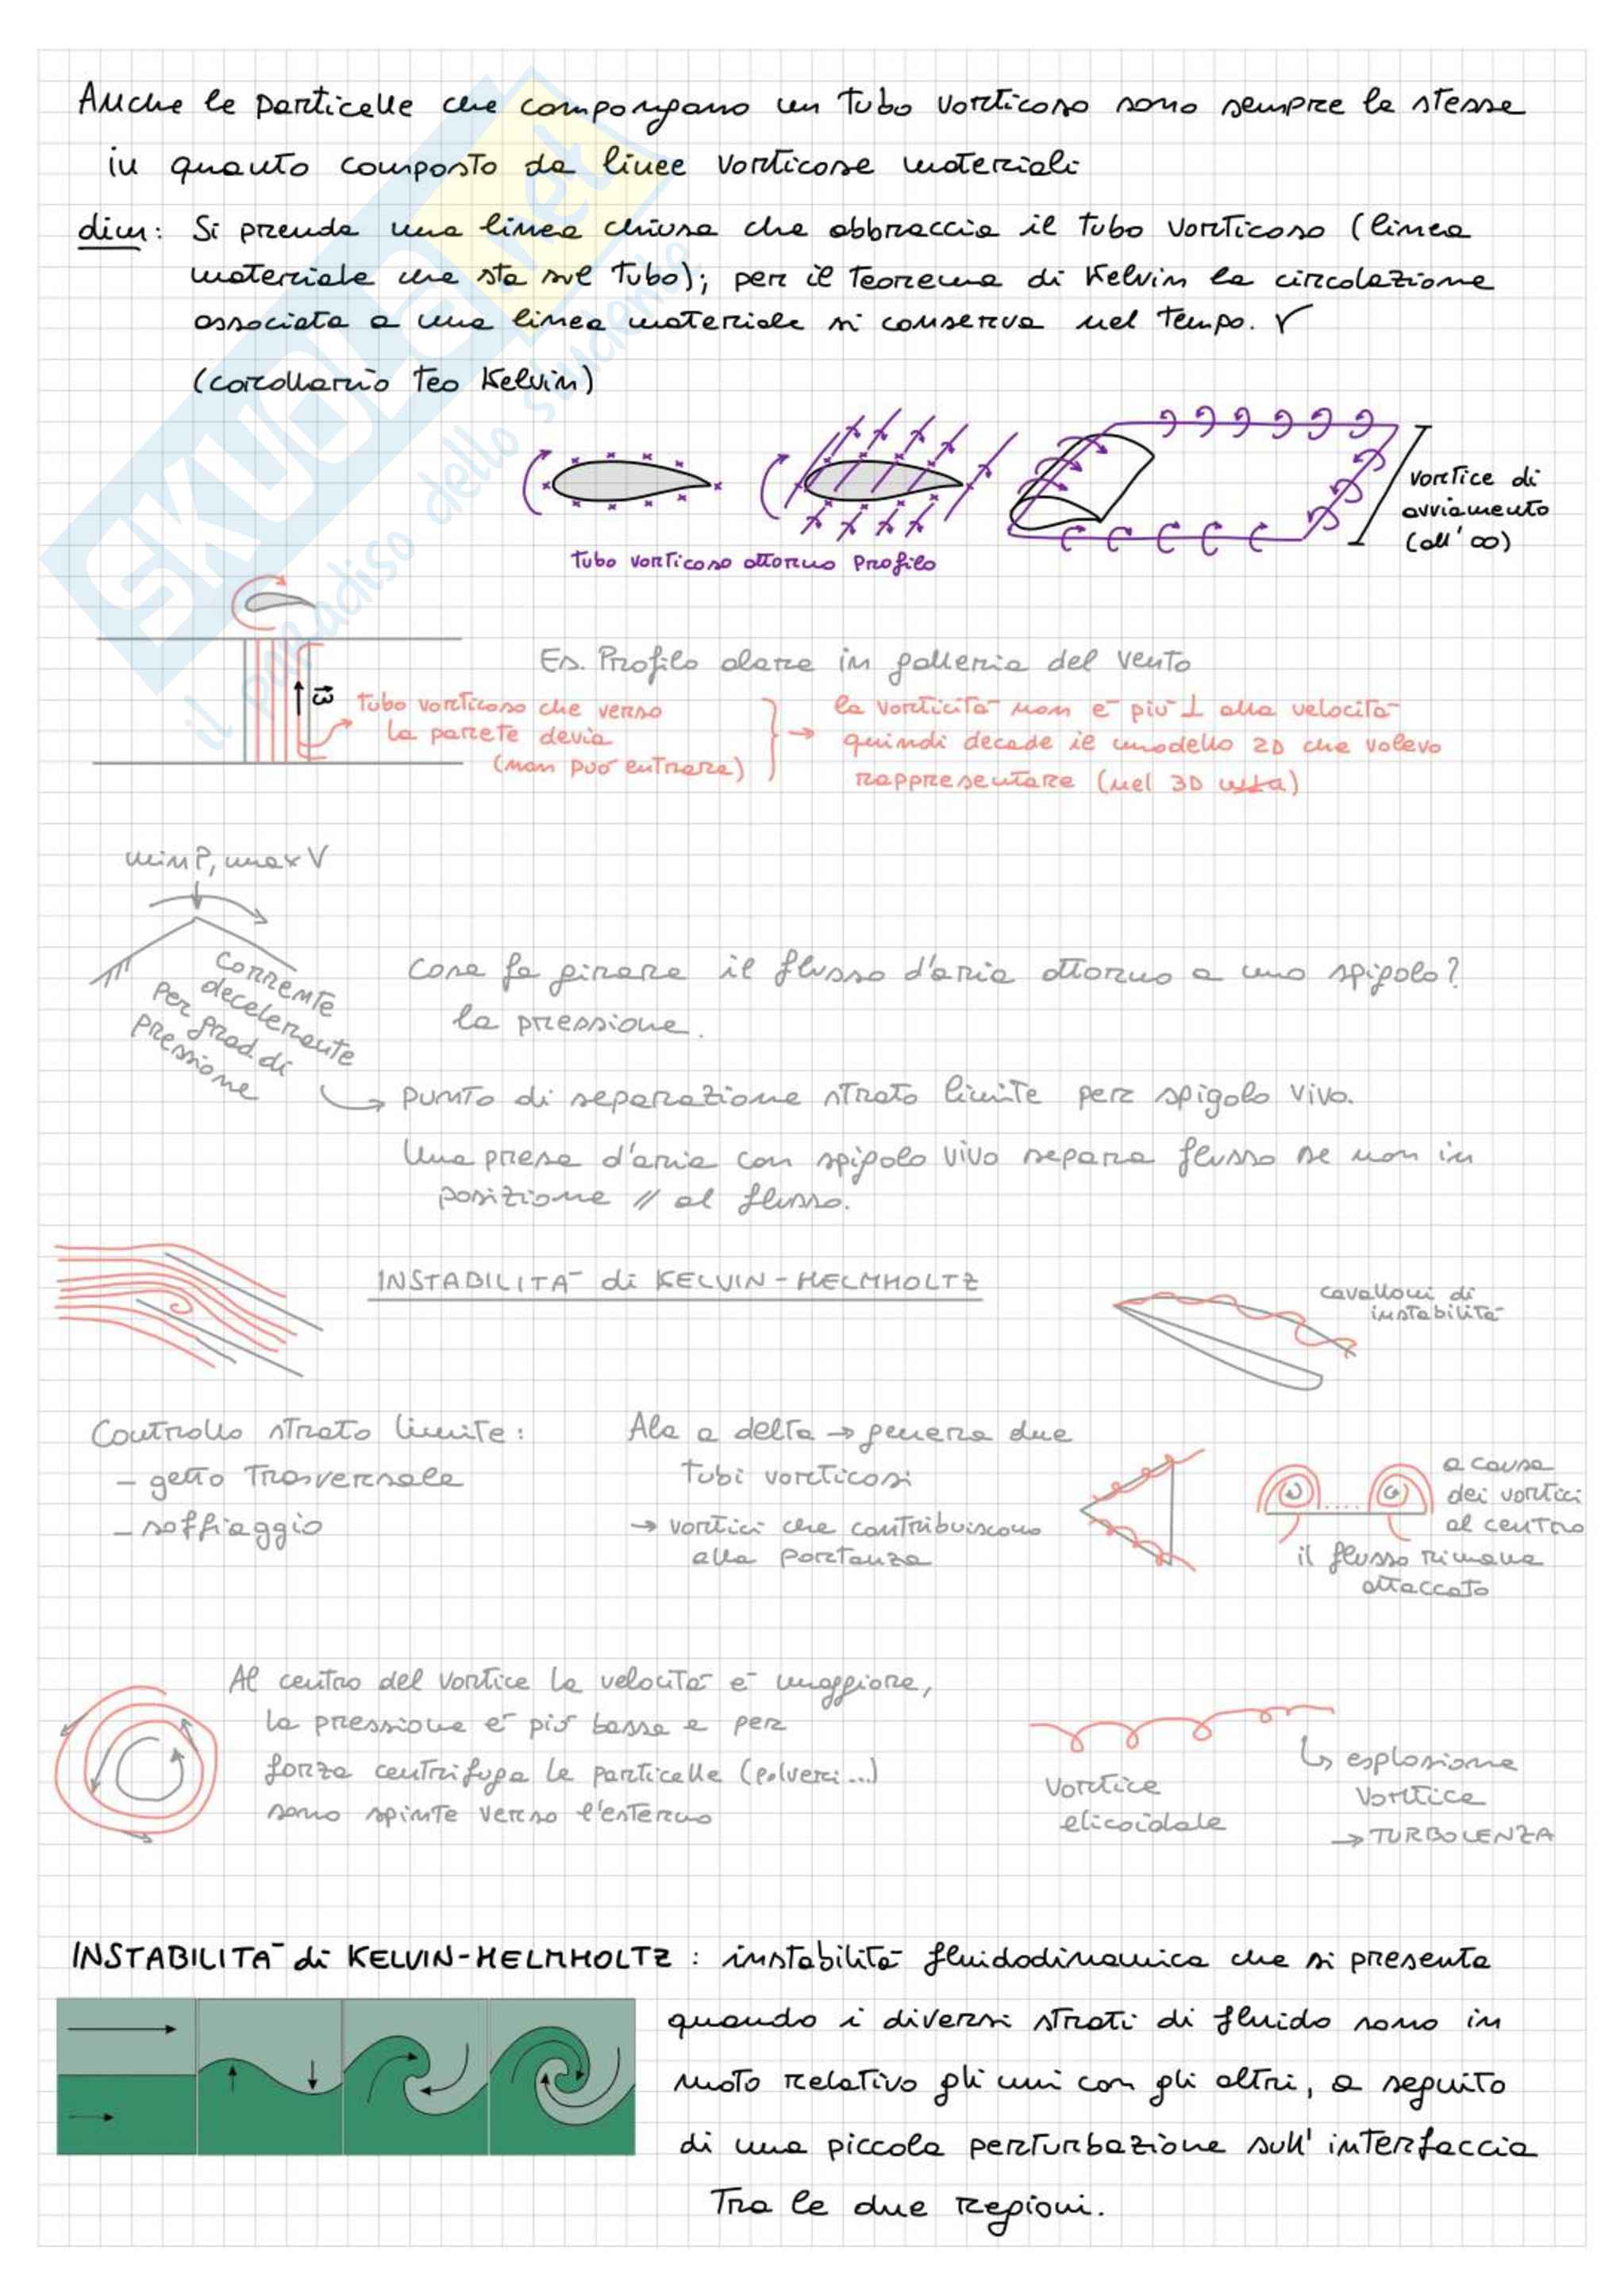 Anche le particelle che compongano un tubo vorticoso sono sempre le stesse
in quanto composto da linee vorticose materiali
dim: Si prenda una linea chiusa che abbraccia il tubo vorticoso (linea
materiale che sta sul tubo); per il teorema di Kelvin la circolazione
associata a una linea materiale si conserva nel tempo.
(corollario teo Kelvin)
vortice di
avviamento
(all' ∞)
Tubo vorticoso attorno profilo
Es. Profilo alare in galleria del vento
ω
tubo vorticoso che verso
la parete devia
(non può entrare)
la vorticità non è più ⊥ alla velocità
quindi decade il modello 2D che volevo
rappresentare (nel 3D
min P, max V
Corrente
decelerante
per grad. di
pressione
Cosa fa girare il flusso d'aria attorno a uno spigolo?
la pressione.
punto di separazione strato limite per spigolo vivo.
Una presa d'aria con spigolo vivo separa flusso se non in
posizione // al flusso.
INSTABILITÀ di KELVIN-HELMHOLTZ
cavalloni di
instabilità
Controllo strato limite:
- getto trasversale
- soffiaggio
Ala a delta → genera due
tubi vorticosi
→ vortici che contribuiscono
alla portanza
a causa
dei vortici
al centro
il flusso rimane
attaccato
Al centro del vortice la velocità è maggiore,
la pressione è più bassa e per
forza centrifuga le particelle (polveri...)
sono spinte verso l'esterno
Vortice
elicoidale
↳ esplosione
vortice
→ TURBOLENZA
INSTABILITÀ di KELVIN-HELMHOLTZ : instabilità fluidodinamica che si presenta
quando i diversi strati di fluido sono in
moto relativo gli uni con gli altri, a seguito
di una piccola perturbazione sull' interfaccia
Tra le due regioni.
SKUOLA.net
il paradiso dello studente